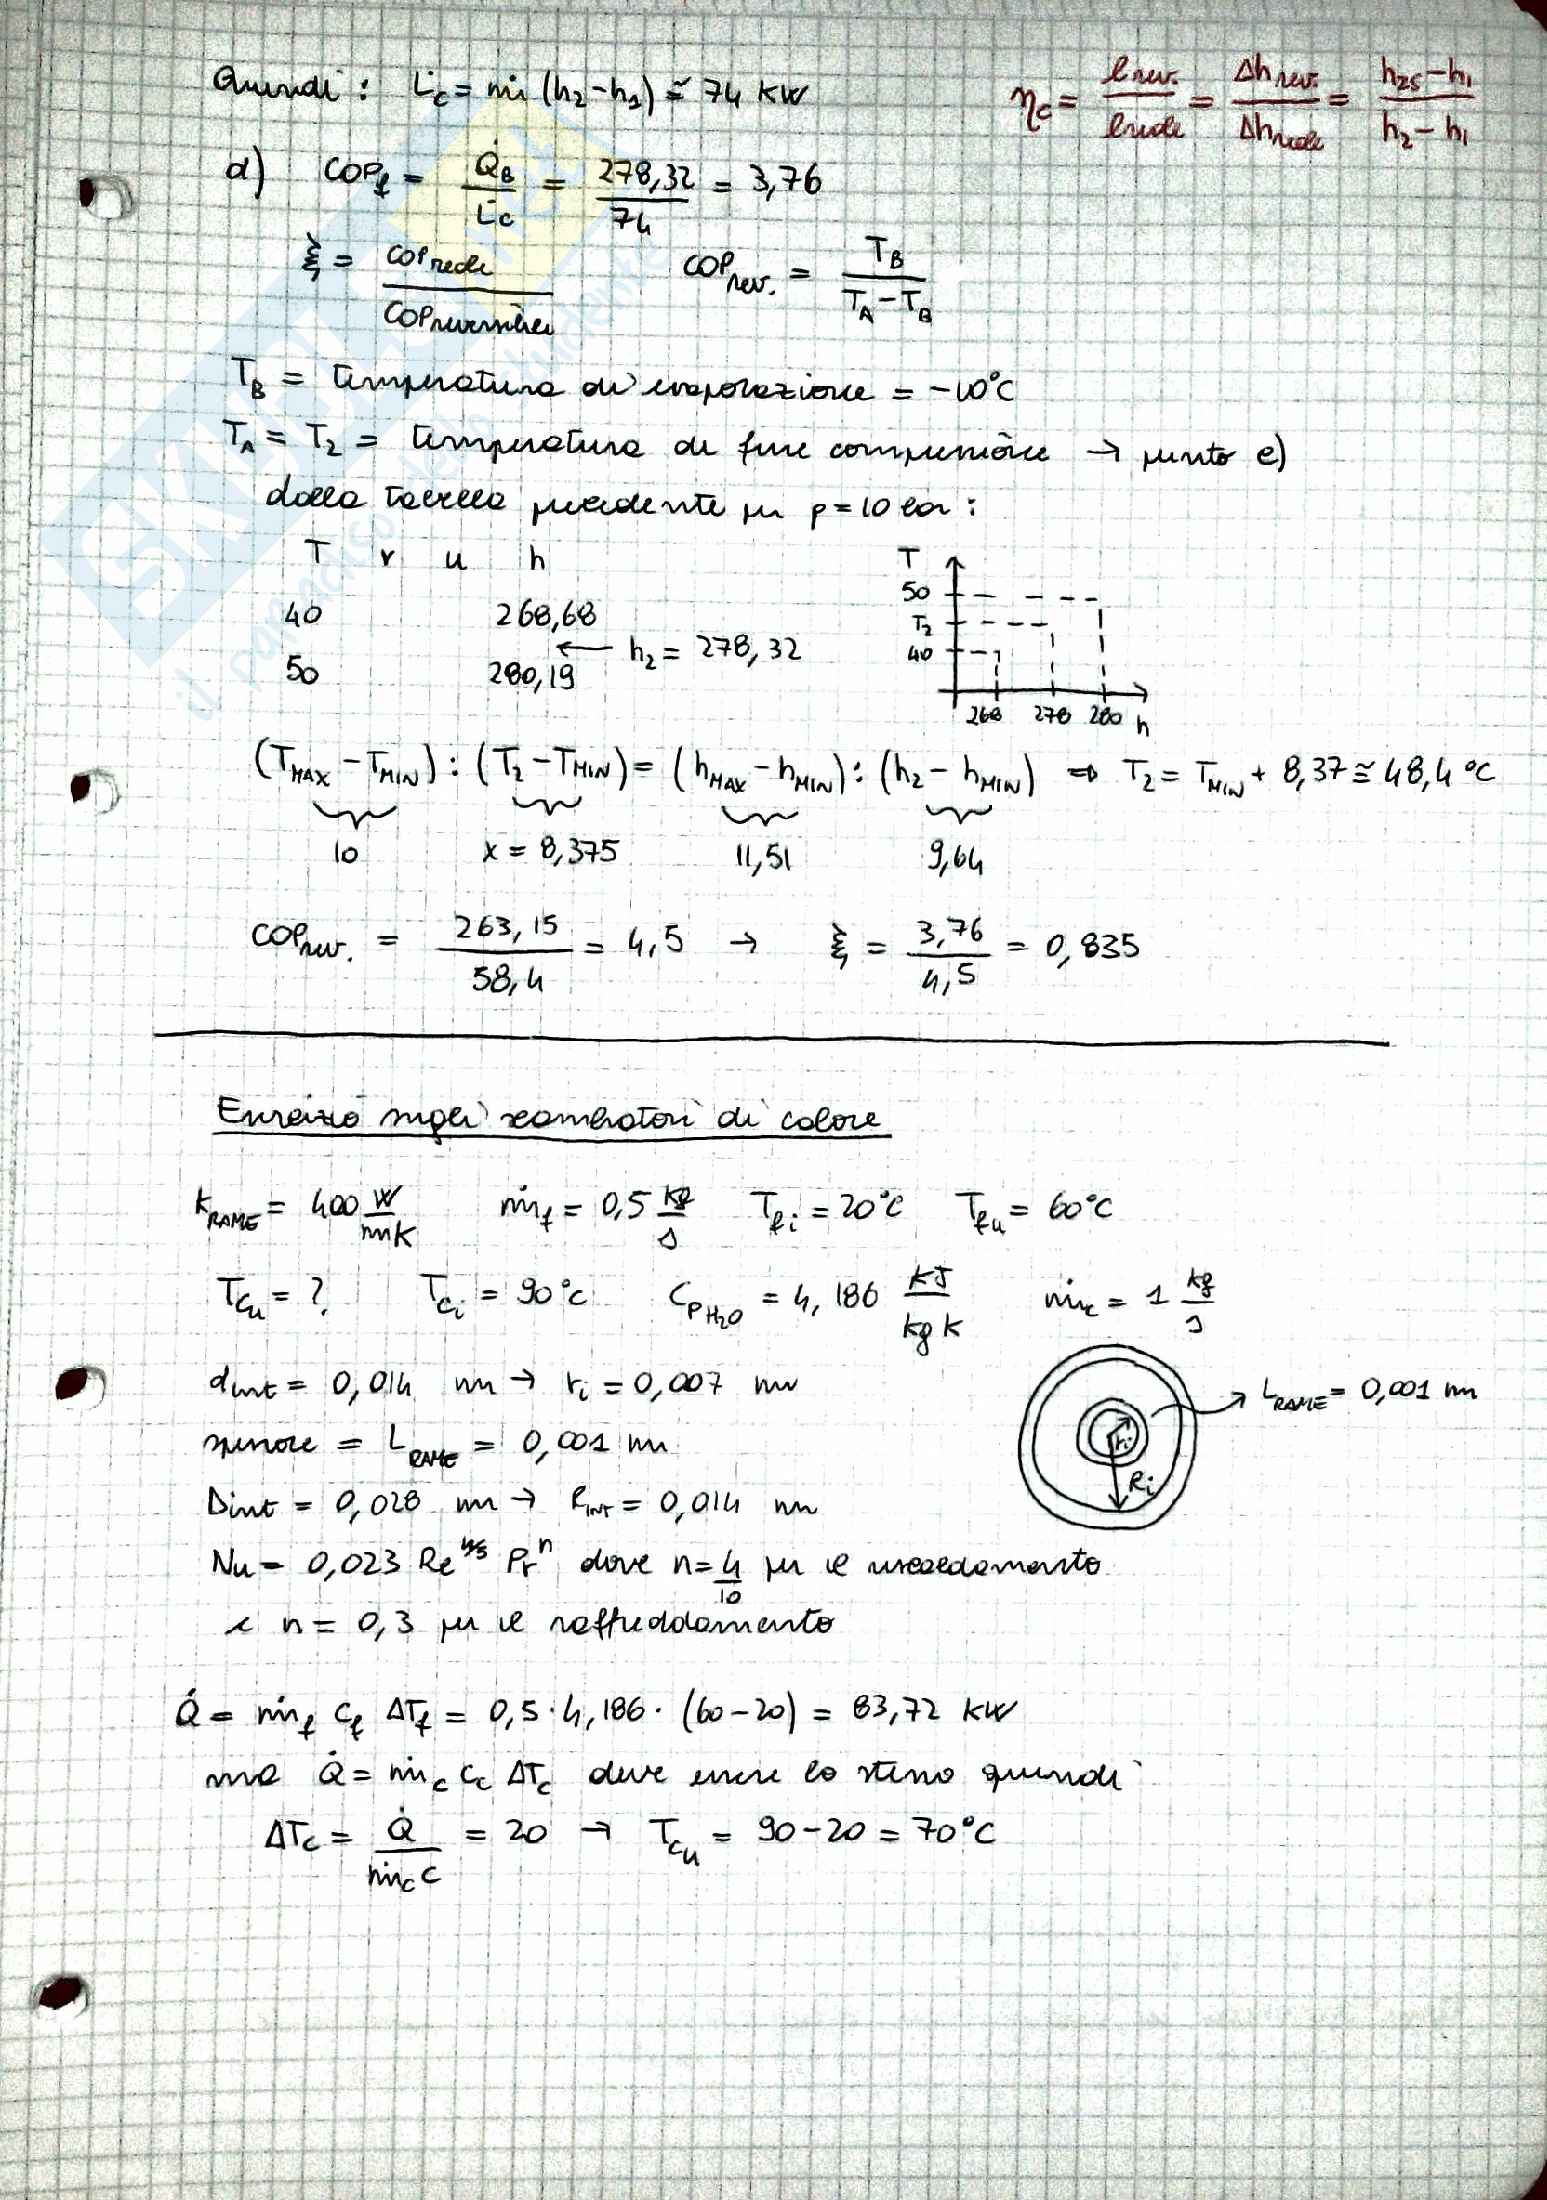 Quindi : L̇c = ṁ (h₂-h₁) ≅ 74 KW
ηc = l rev. / l reale = Δh rev. / Δh reale = h₂s-h₁ / h₂-h₁
d) COPf = Q̇B / L̇c = 278,32 / 74 = 3,76
ξ = COP reale / COP reversibile COP rev. = TB / TA-TB
TB = temperatura di evaporazione = -10°C
TA = T2 = temperatura di fine compressione → punto e)
dalla tabella precedente per p = 10 bar :
T v u h
40 268,68
← h₂ = 278,32
50 280,19
T
50
T2
40
268 278 280 h
(TMAX - TMIN) : (T2 - TMIN) = (hMAX - hMIN) : (h2 - hMIN) ⇒ T2 = TMIN + 8,37 ≅ 48,4 °C
10 x = 8,375 11,51 9,64
COP rev. = 263,15 / 58,4 = 4,5 → ξ = 3,76 / 4,5 = 0,835
Esercizio sugli scambiatori di calore
KRAME = 400 W/mK ṁf = 0,5 kg/s Tfi = 20°C Tfu = 60°C
Tcu = ? Tci = 90°C CpH₂O = 4,186 KJ/kg K ṁc = 1 kg/s
dint = 0,014 m → ri = 0,007 m
LRAME = 0,001 m
spessore = LRAME = 0,001 m
ri
Ri
Dint = 0,028 m → RINT = 0,014 m
Nu = 0,023 Re^4/5 Pr^n dove n = 4/10 per il riscaldamento
e n = 0,3 per il raffreddamento
Q̇ = ṁf cf ΔTf = 0,5 · 4,186 · (60-20) = 83,72 KW
ma Q̇ = ṁc cc ΔTc deve essere lo stesso quindi
ΔTc = Q̇ / ṁc c = 20 → Tcu = 90-20 = 70°C